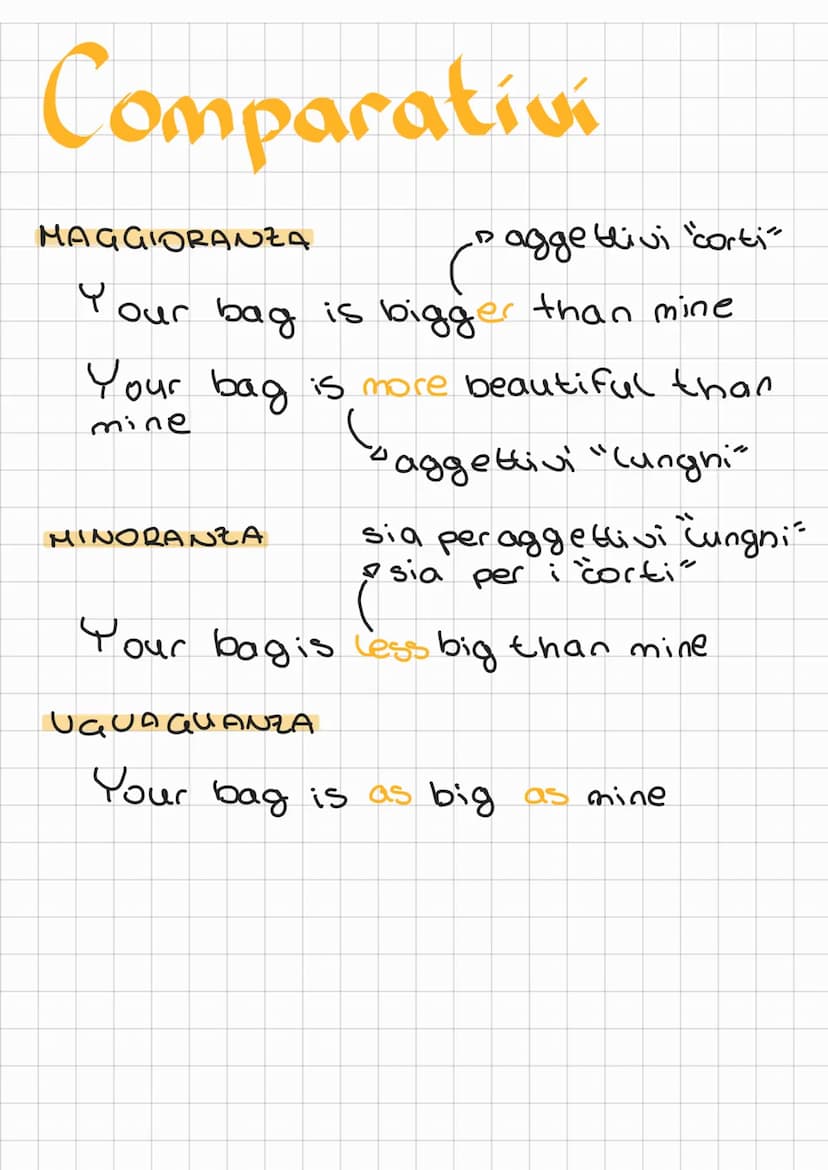 Comparativi
MAGGIORANZA
aggettivi "corti"
Your bag is bigger than mine
Your bag is more beautiful than
mine
aggettivi "lunghi"
MINORANZA
sia per aggettivi "lunghi"
sia per i "corti"
Your bag is less big than mine
UGUAGLIANZA
Your bag is as big as mine